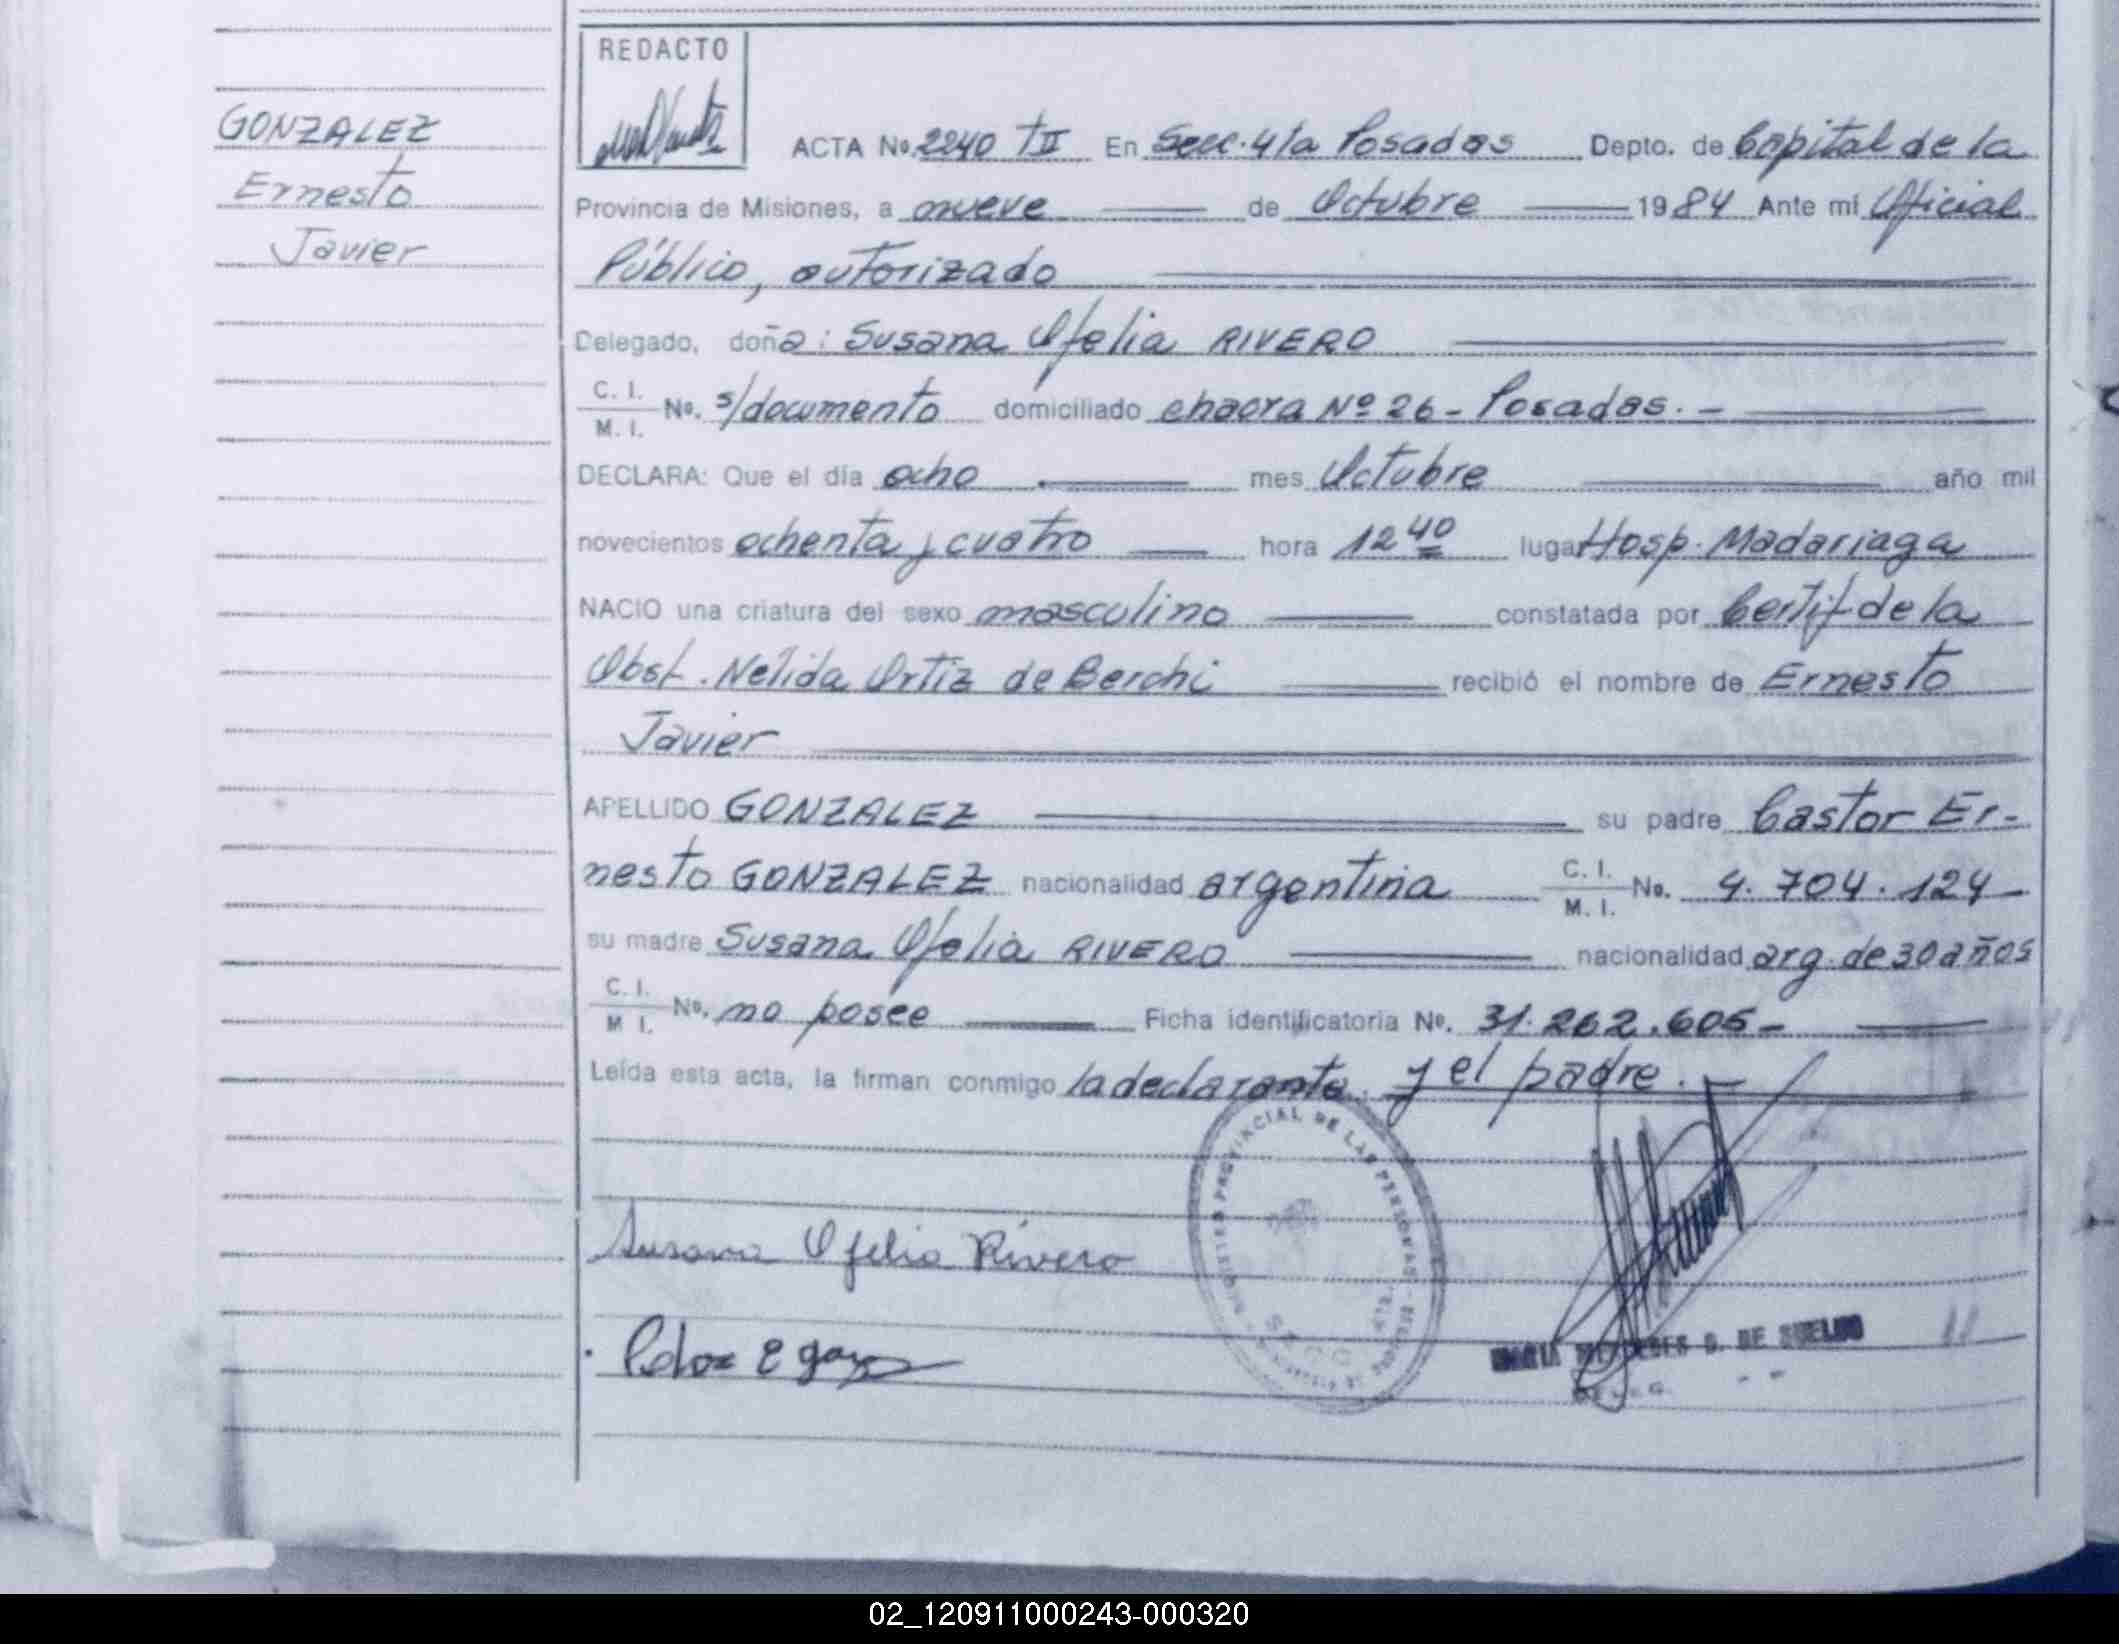 GONZALEZ
Ernesto
Javier
REDACTO
ACTA No. 2240 TII En Secc. 4ta Posadas Depto. de Capital de la
Provincia de Misiones, a nueve de Octubre 1984 Ante mi Oficial
Público, autorizado
Delegado, doña: Susana Ofelia RIVERO
C. I.
M. I. No. s/documento domiciliado chacra Nº 26 - Posadas. -
DECLARA: Que el día ocho mes Octubre año mil
novecientos ochenta y cuatro hora 12 40 lugar Hosp. Madariaga
NACIO una criatura del sexo masculino constatada por Certif de la
Obst. Nélida Ortiz de Berchi recibió el nombre de Ernesto
Javier
APELLIDO GONZALEZ su padre Castor Er-
nesto GONZALEZ nacionalidad argentina C. I.
M. I. No. 4.704.124-
su madre Susana Ofelia RIVERO nacionalidad arg. de 30 años
C. I.
M I. No. no posee Ficha identificatoria No. 31.262.605-
Leída esta acta, la firman conmigo la declarante y el padre. -
REGISTRO PROVINCIAL DE LAS PERSONAS
Susana Ofelia Rivero
MARIA MERCEDES G. DE SUELDO
02_120911000243-000320